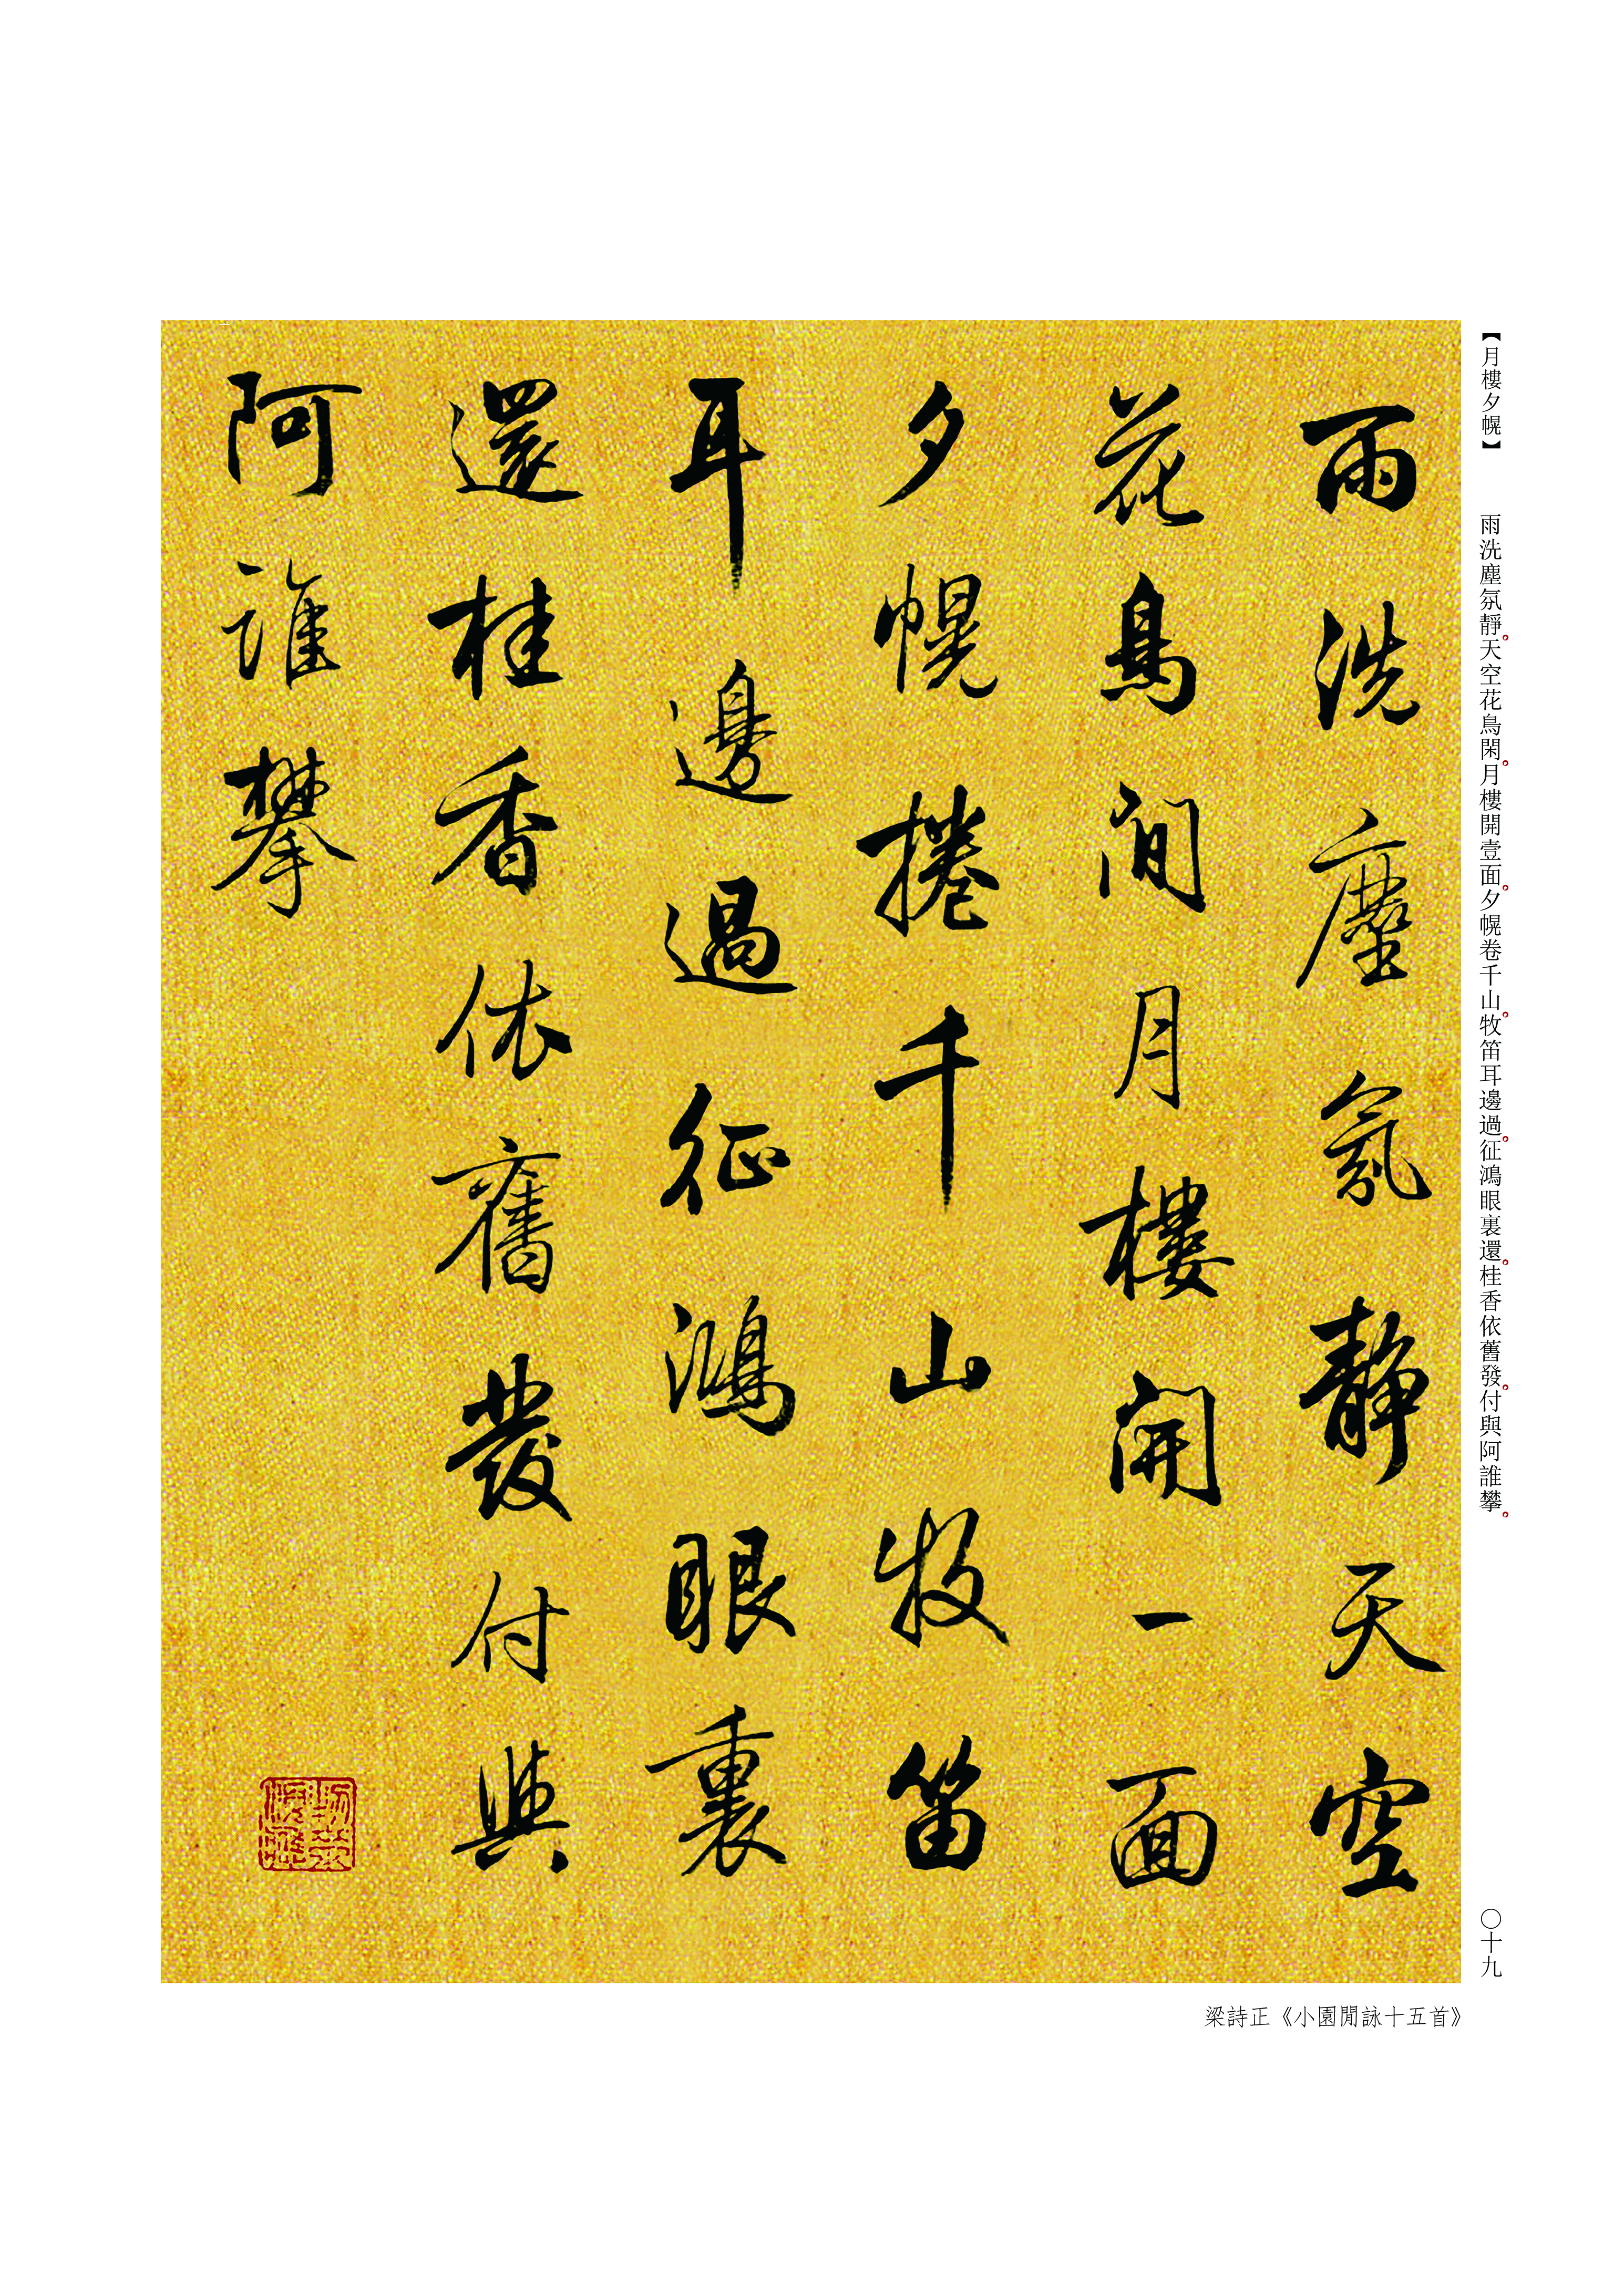 【月樓夕幌】
雨洗塵氛靜。天空花鳥閑。月樓開壹面。夕幌卷千山。牧笛耳邊過。征鴻眼裏還。桂香依舊發。付與阿誰攀。
〇十九
雨洗塵氛靜天空
花鳥閒月樓開一面
夕幌捲千山牧笛
耳邊過征鴻眼裏
還桂香依舊發付與
阿誰攀
梁詩正《小園閒詠十五首》